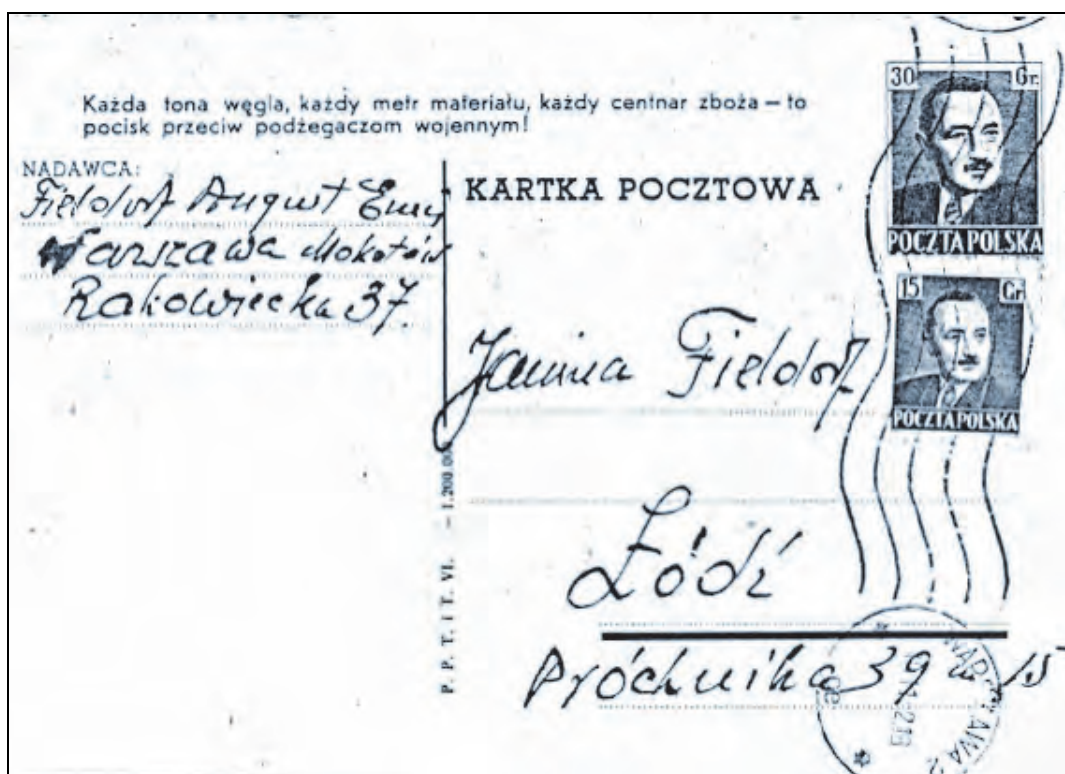 Każda tona węgla, każdy metr materiału, każdy centnar zboża — to
pocisk przeciw podżegaczom wojennym!
NADAWCA:
Fieldorf August Emil
Warszawa Mokotów
Rakowiecka 37
KARTKA POCZTOWA
30 Gr.
POCZTA POLSKA
15 Gr.
POCZTA POLSKA
Janina Fieldorf
Łódź
Próchnika 39 m 15
P. P. T. i T. VI. – 1.200.00
WARSZAWA 2